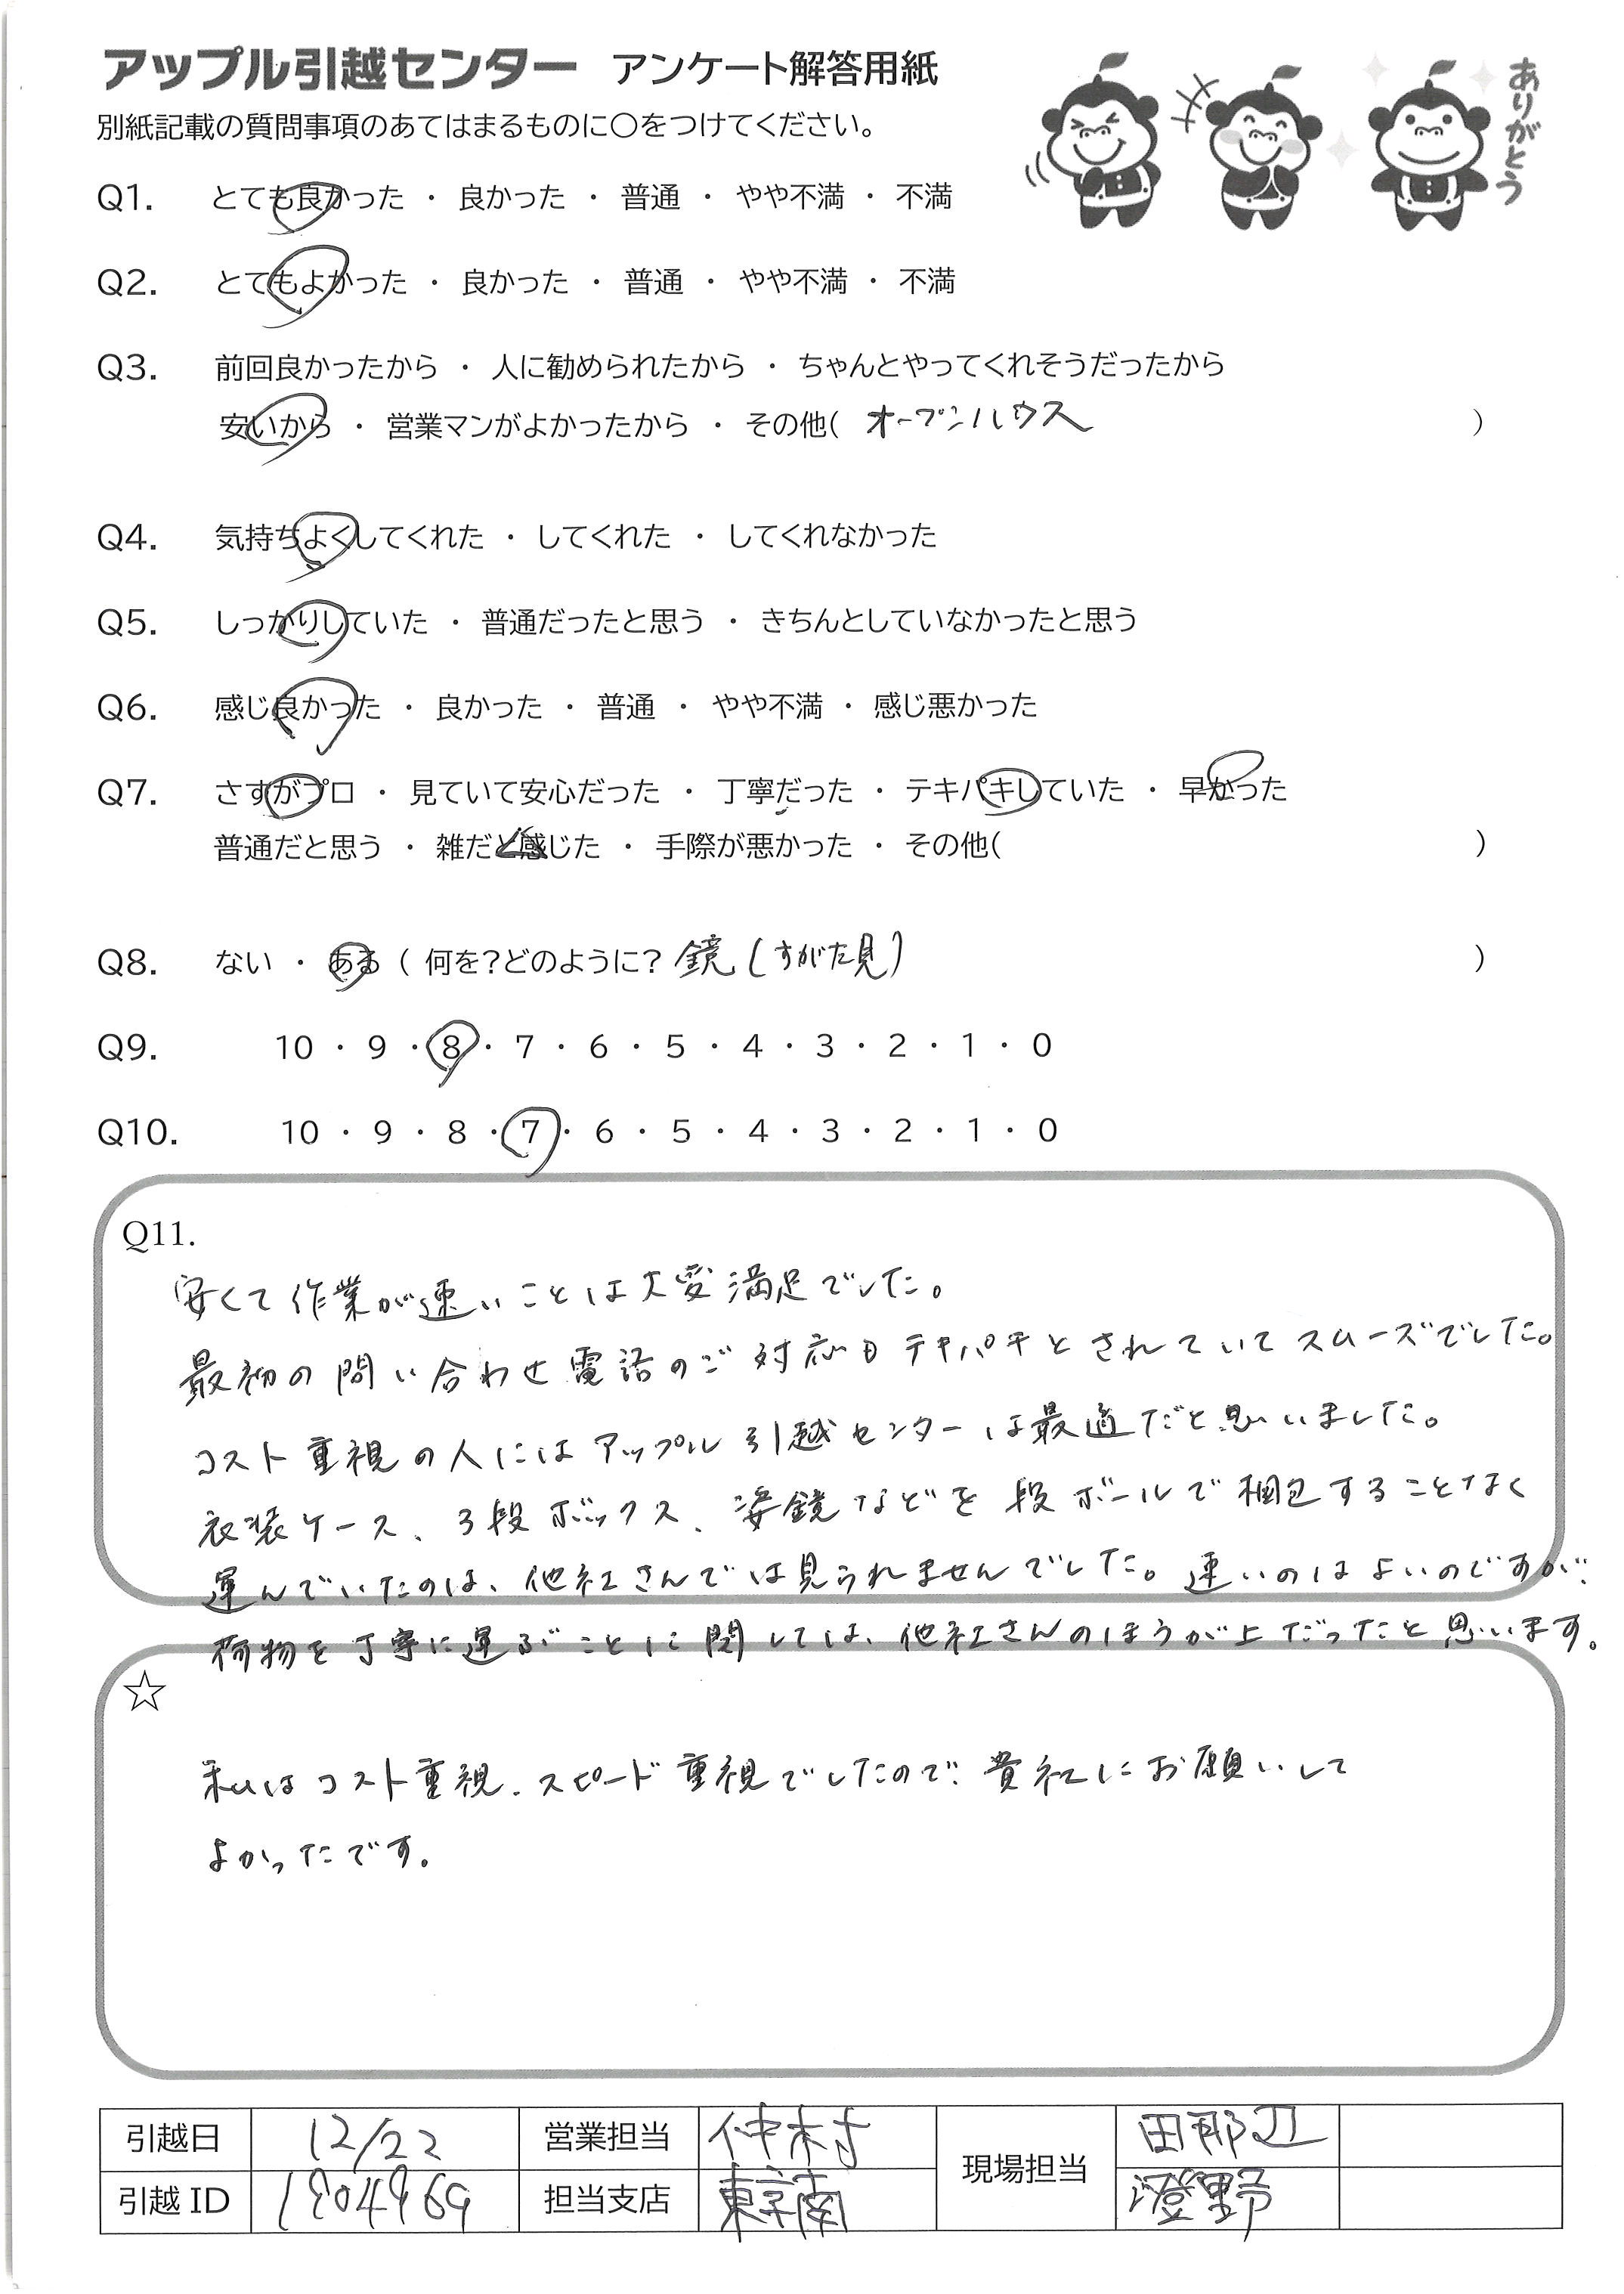 アップル引越センター アンケート解答用紙
ありがとう
別紙記載の質問事項のあてはまるものに〇をつけてください。
Q1. とても良かった ・ 良かった ・ 普通 ・ やや不満 ・ 不満
Q2. とてもよかった ・ 良かった ・ 普通 ・ やや不満 ・ 不満
Q3. 前回良かったから ・ 人に勧められたから ・ ちゃんとやってくれそうだったから
安いから ・ 営業マンがよかったから ・ その他( オープンハウス )
Q4. 気持ちよくしてくれた ・ してくれた ・ してくれなかった
Q5. しっかりしていた ・ 普通だったと思う ・ きちんとしていなかったと思う
Q6. 感じ良かった ・ 良かった ・ 普通 ・ やや不満 ・ 感じ悪かった
Q7. さすがプロ ・ 見ていて安心だった ・ 丁寧だった ・ テキパキしていた ・ 早かった
普通だと思う ・ 雑だと感じた ・ 手際が悪かった ・ その他( )
Q8. ない ・ ある ( 何を?どのように? 鏡(すがた見) )
Q9. 10 ・ 9 ・ 8 ・ 7 ・ 6 ・ 5 ・ 4 ・ 3 ・ 2 ・ 1 ・ 0
Q10. 10 ・ 9 ・ 8 ・ 7 ・ 6 ・ 5 ・ 4 ・ 3 ・ 2 ・ 1 ・ 0
Q11.
安くて作業が速いことは大変満足でした。
最初の問い合わせ電話のご対応もテキパキとされていてスムーズでした。
コスト重視の人にはアップル引越センターは最適だと思いました。
衣装ケース、3段ボックス、姿鏡などを段ボールで梱包することなく
運んでいたのは、他社さんでは見られませんでした。速いのはよいのですが、
荷物を丁寧に運ぶことに関しては、他社さんのほうが上だったと思います。
☆
私はコスト重視、スピード重視でしたので、貴社にお願いして
よかったです。
引越日 12/22 営業担当 仲村 現場担当 田那辺
引越ID 1904969 担当支店 東京南 澄野